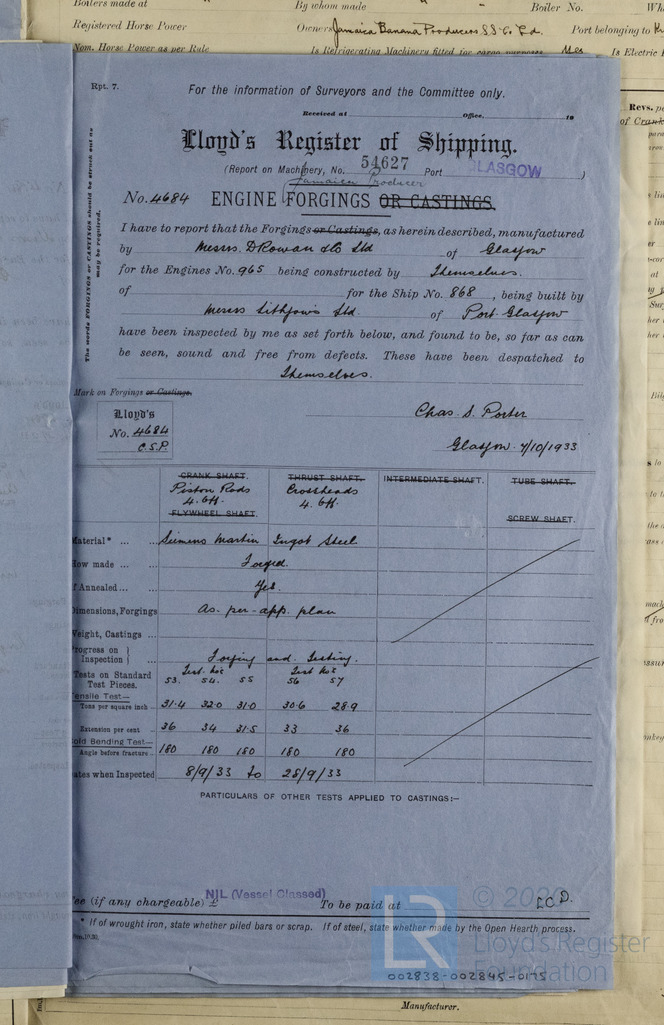 Boilers made at By whom made Boiler No.
Registered Horse Power Owners Jamaica Banana Producers S.S. Co Ld. Port belonging to
Nom. Horse Power as per Rule Is Refrigerating Machinery fitted for cargo purposes Yes Is Electric
Rpt. 7.
For the information of Surveyors and the Committee only.
Received at Office 19
Lloyd's Register of Shipping.
(Report on Machinery, No. 54627 Port GLASGOW )
Jamaica Producer
No. 4684 ENGINE FORGINGS OR CASTINGS.
The words FORGINGS or CASTINGS should be struck out as may be required.
I have to report that the Forgings or Castings, as herein described, manufactured
by Messrs. D Rowan & Co Ltd of Glasgow
for the Engines No. 965 being constructed by Themselves.
of for the Ship No. 868, being built by
Messrs Lithgows Ltd. of Port Glasgow
have been inspected by me as set forth below, and found to be, so far as can
be seen, sound and free from defects. These have been despatched to
Themselves.
Mark on Forgings or Castings.
Lloyd's
No. 4684
C.S.P.
Chas. S. Porter
Glasgow 7/10/1933
CRANK SHAFT. THRUST SHAFT. INTERMEDIATE SHAFT. TUBE SHAFT.
Piston Rods Crossheads
4 off. 4 off.
FLYWHEEL SHAFT. SCREW SHAFT.
Material* Siemens Martin Ingot Steel
How made Forged.
If Annealed Yes.
Dimensions, Forgings As per app. plan
Weight, Castings
Progress on Inspection Forging and Testing.
Tests on Standard Test Pieces. Test Nos 53. 54. 55 Test Nos 56 57
Tensile Test—
Tons per square inch 31.4 32.0 31.0 30.6 28.9
Extension per cent 36 34 31.5 33 36
Cold Bending Test—
Angle before fracture 180 180 180 180 180
Dates when Inspected 8/9/33 to 28/9/33
PARTICULARS OF OTHER TESTS APPLIED TO CASTINGS:—
NIL (Vessel Classed)
Fee (if any chargeable) £ To be paid at
* If of wrought iron, state whether piled bars or scrap. If of steel, state whether made by the Open Hearth process.
LR
Lloyd's Register
Foundation
002838-002845-0175
Manufacturer.